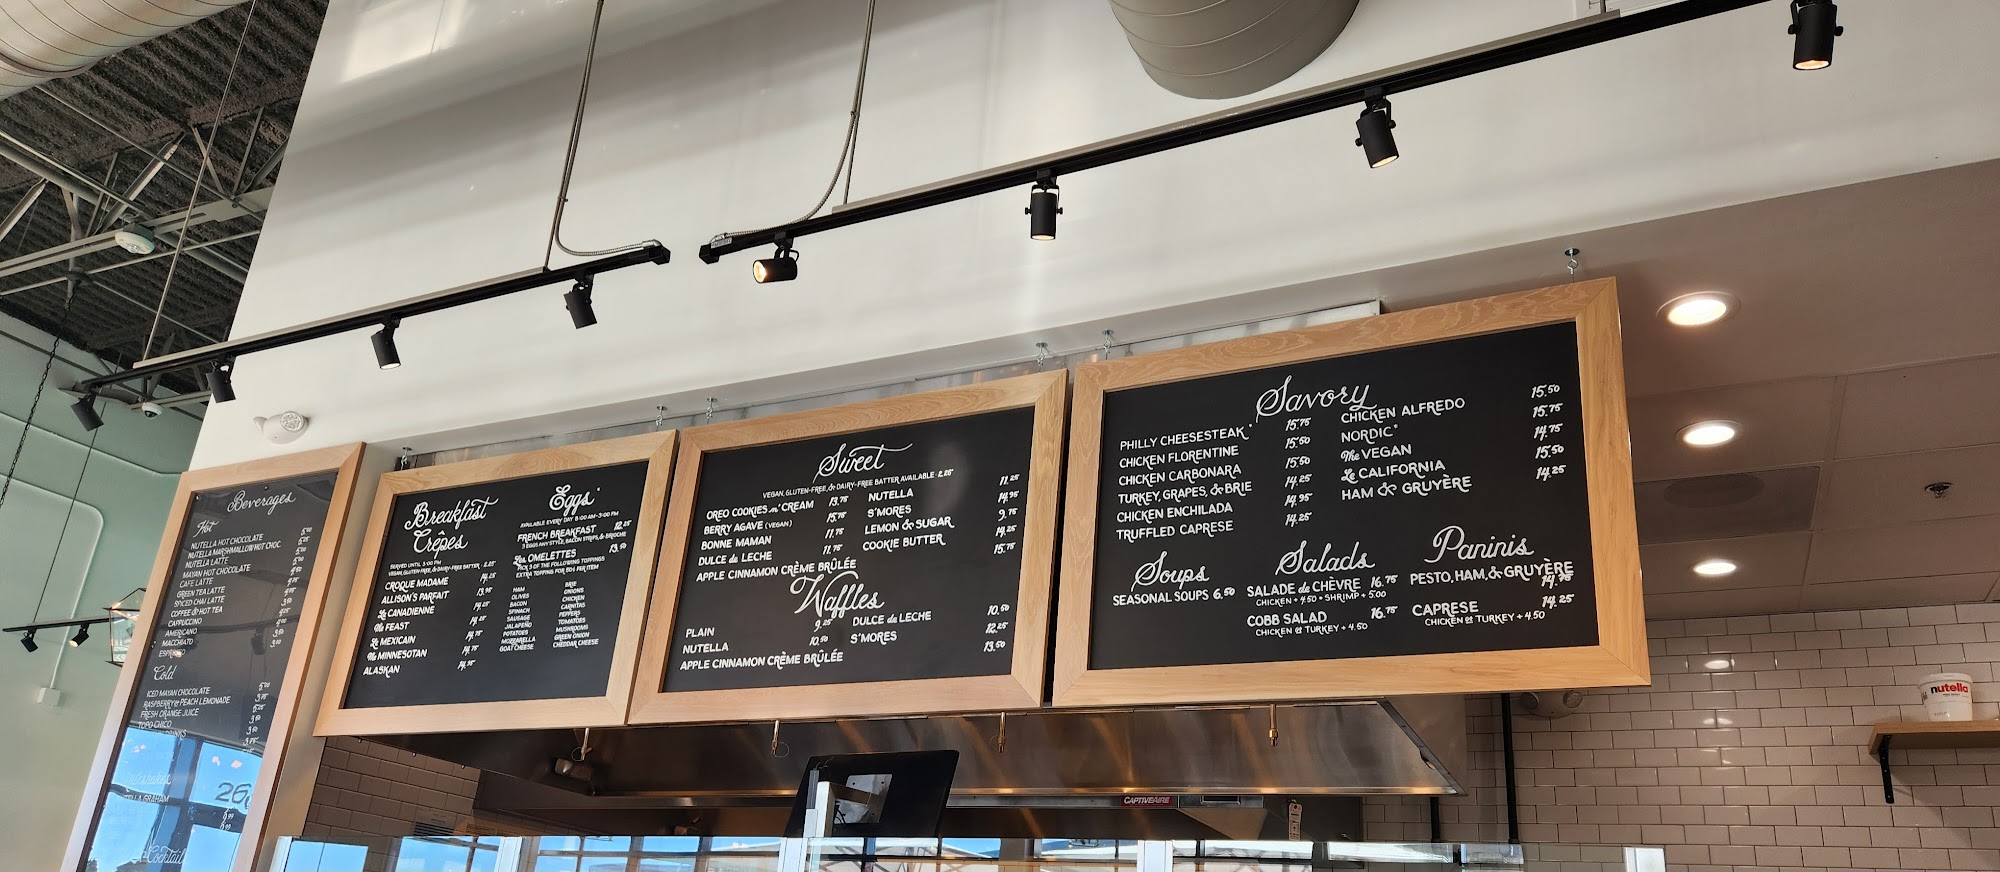 Beverages
Hot
NUTELLA HOT CHOCOLATE 5.00
NUTELLA MARSHMALLOW HOT CHOC.
NUTELLA LATTE
MAYAN HOT CHOCOLATE
CAFE LATTE
GREEN TEA LATTE
SPICED CHAI LATTE
COFFEE & HOT TEA
CAPPUCCINO
AMERICANO
MACCHIATO
ESPRESSO
Cold
ICED MAYAN CHOCOLATE 5.00
RASPBERRY & PEACH LEMONADE
FRESH ORANGE JUICE
TOPO CHICO
Breakfast
Crêpes
SERVED UNTIL 3:00 PM
VEGAN, GLUTEN-FREE, & DAIRY-FREE BATTER · 2.25
CROQUE MADAME 14.25
ALLISON'S PARFAIT 13.95
Le CANADIENNE 14.25
The FEAST
Le MEXICAIN 14.75
The MINNESOTAN 14.75
ALASKAN 14.95
Eggs*
AVAILABLE EVERY DAY 8:00 AM-3:00 PM
FRENCH BREAKFAST 12.25
3 EGGS ANY STYLE, BACON STRIPS, & BRIOCHE
Les OMELETTES 13.50
PICK 3 OF THE FOLLOWING TOPPINGS
EXTRA TOPPING FOR 50¢ PER ITEM
HAM
OLIVES
BACON
SPINACH
SAUSAGE
JALAPEÑO
POTATOES
MOZZARELLA
GOAT CHEESE
BRIE
ONIONS
CHICKEN
CARNITAS
PEPPERS
TOMATOES
MUSHROOMS
GREEN ONION
CHEDDAR CHEESE
Sweet
VEGAN, GLUTEN-FREE, & DAIRY-FREE BATTER AVAILABLE · 2.25
OREO COOKIES n' CREAM 13.75
BERRY AGAVE (VEGAN) 15.75
BONNE MAMAN 11.75
DULCE de LECHE 11.75
APPLE CINNAMON CRÈME BRÛLÉE
NUTELLA 11.25
S'MORES 14.95
LEMON & SUGAR 9.75
COOKIE BUTTER 14.25
15.75
Waffles
PLAIN 9.25
NUTELLA 10.50
APPLE CINNAMON CRÈME BRÛLÉE
DULCE de LECHE 10.50
S'MORES 12.25
13.50
Savory
PHILLY CHEESESTEAK* 15.75
CHICKEN FLORENTINE 15.50
CHICKEN CARBONARA 15.50
TURKEY, GRAPES, & BRIE 14.25
CHICKEN ENCHILADA 14.95
TRUFFLED CAPRESE 14.25
CHICKEN ALFREDO 15.50
NORDIC* 15.75
The VEGAN 14.75
Le CALIFORNIA 15.50
HAM & GRUYÈRE 14.25
Soups
SEASONAL SOUPS 6.50
Salads
SALADE de CHÈVRE 16.75
CHICKEN + 4.50 • SHRIMP + 5.00
COBB SALAD 16.75
CHICKEN or TURKEY + 4.50
Paninis
PESTO, HAM, & GRUYÈRE
14.75
CAPRESE 14.25
CHICKEN or TURKEY + 4.50
nutella
CAPTIVEAIRE